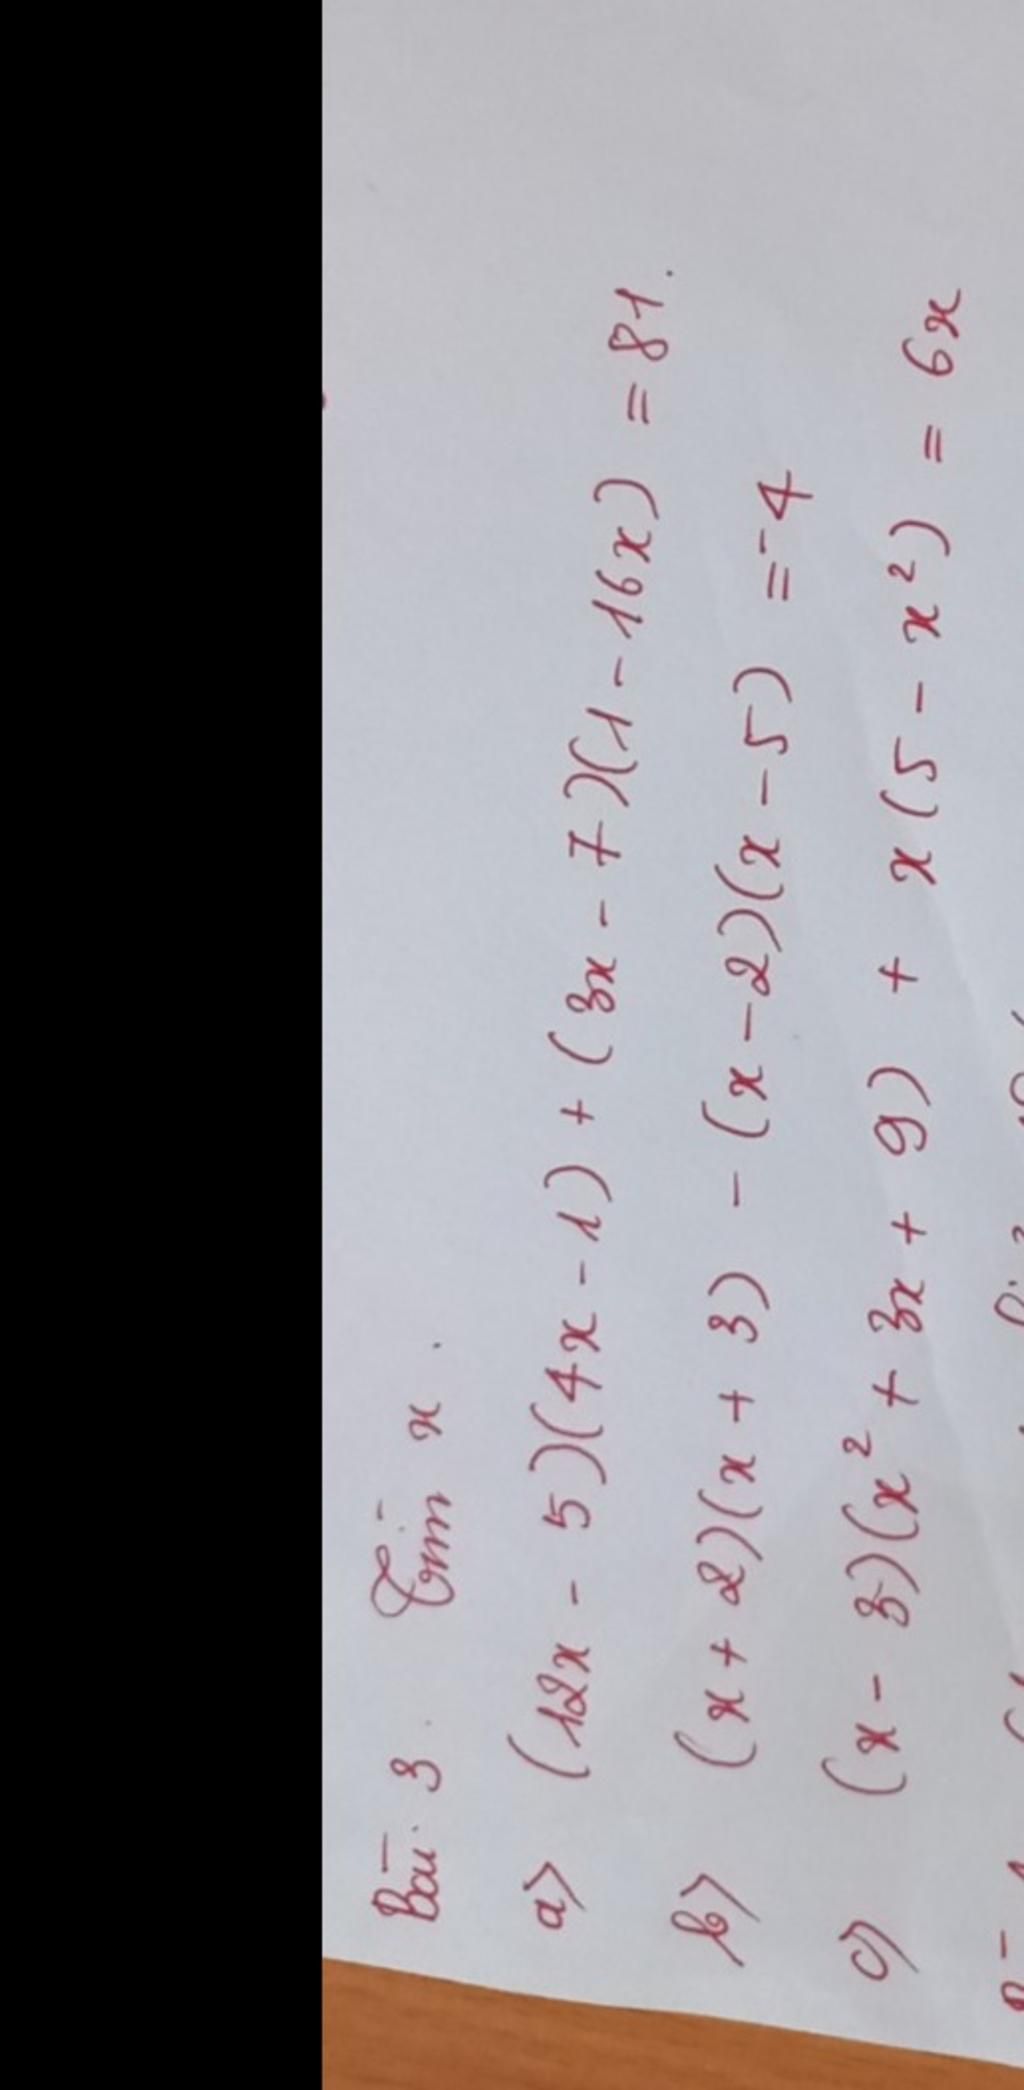 Bài 3. Tìm x.
a) (12x - 5)(4x - 1) + (3x - 7)(1 - 16x) = 81.
b) (x + 2)(x + 3) - (x - 2)(x - 5) = -4
c) (x - 3)(x² + 3x + 9) + x(5 - x²) = 6x